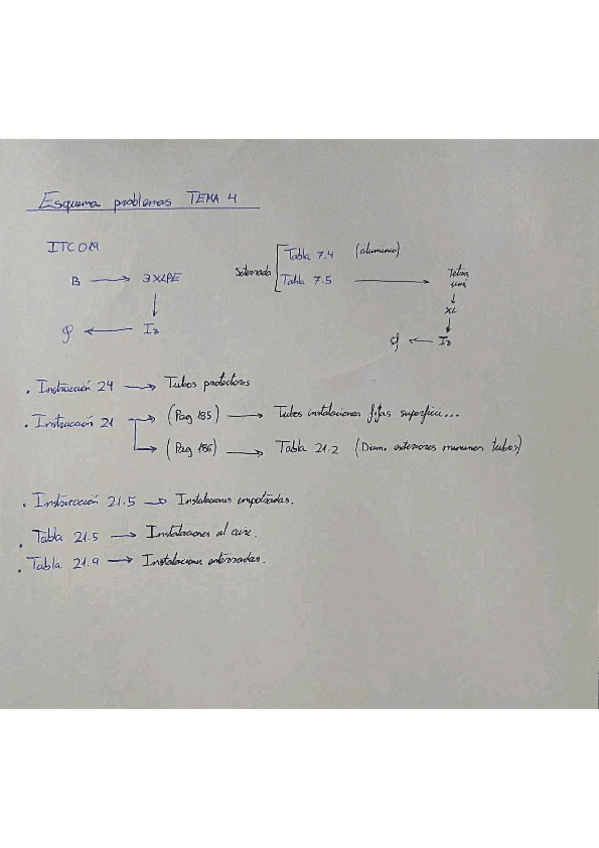 Esquema problemas TEMA 4
ITCOM
B → 3XLPE
↓
ø ← Iz
Soterrada
Tabla 7.4 (aluminio)
Tabla 7.5 → Tetra
uni
↓
XL
↓
ø ← Iz
. Instrucción 24 → Tubos protectores
. Instrucción 21 → (Pag 185) → Tubos instalaciones fijas superfici...
→ (Pag 186) → Tabla 21.2 (Diam. exteriores minimos tubos)
. Instrucción 21.5 → Instalaciones empotradas.
. Tabla 21.5 → Instalaciones al aire.
. Tabla 21.9 → Instalaciones enterradas.